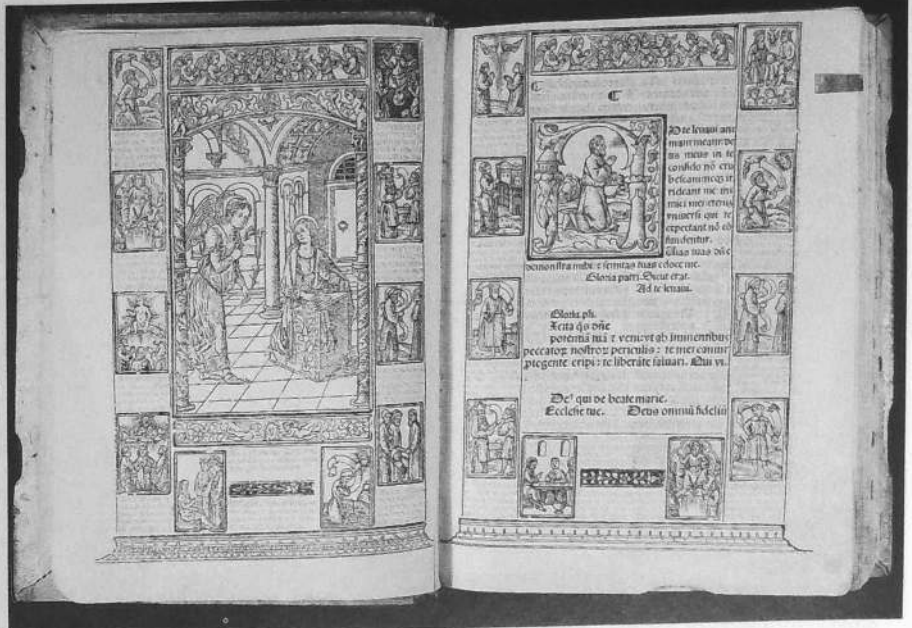 D te leuaui ani
mam meam: de
us meus in te
confido nō eru
bescam: neqʒ ir
rideant me ini
mici mei: etenim
vniuersi qui te
expectant nō cō
fundentur.
Uias tuas dñe
demonstra mihi: ⁊ semitas tuas edoce me.
Gloria patri. Sicut erat.
Ad te leuaui.
Gloria. ps.
xcita q̄s dñe
potentiā tuā ⁊ veni: vt ab imminentibus
peccatoꝝ nostroꝝ periculis: te mereamur
ꝓtegente eripi: te liberāte saluari. Qui vi.
qui de beate marie.
Ecclesie tue. Deus omniū fideliū